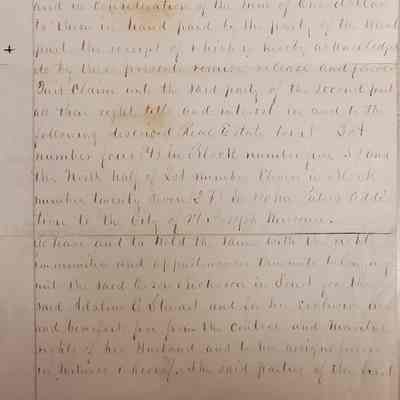 and in Consideration of the Sum of One dollar
to them in hand paid by the party of the Second
part the receipt of which is hereby acknowledged
do by these presents remise release and forever
Quit Claim unto the said party of the second part
all their right title and interest in and to the
following described Real Estate to wit Lot
number four (4) in Block number five 5 and
the North half of Lot number Eleven in Block
number twenty seven 27 in Addi
tion to the City of St Joseph Missouri.
To have and to Hold the Same with the rights
immunities and appurtenances thereunto belonging
unto the said in Trust for the
said Adaline E Stewart and for her exclusive use
and benefit free from the Control and Marital
rights of her Husband and to her assigns forever
in Witness whereof. The said parties of the first